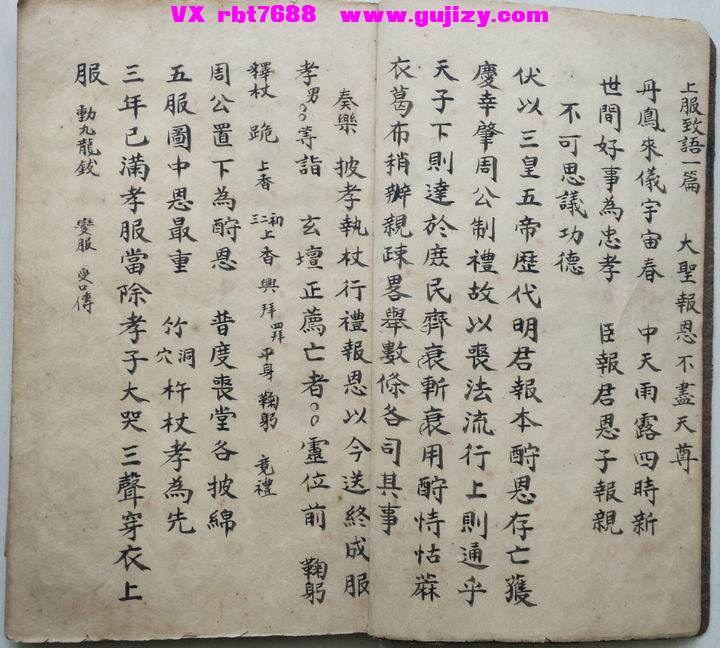 VX rbt7688 www.gujizy.com
上服致語一篇 大聖報恩不盡天尊
丹鳳來儀宇宙春 中天雨露四時新
世間好事為忠孝 臣報君恩子報親
不可思議功德
伏以三皇五帝歷代明君報本酧恩存亡獲
慶幸肇周公制禮故以喪法流行上則通乎
天子下則達於庶民齊衰斬衰用酧恃怙蔴
衣葛布稍辦親疎畧舉數條各司其事
奏樂 披孝執杖行禮報恩以今送終成服
孝男○○等詣 玄壇正薦亡者○○靈位前 鞠躬
釋杖 跪 上香 初二三上香 興拜 四拜 平身 鞠躬 竟禮
周公置下為酧恩 普度喪堂各披綿
五服圖中恩最重 竹洞穴杵杖孝為先
三年已滿孝服當除孝子大哭三聲穿衣上
服 動九龍鈸 變服 口傳